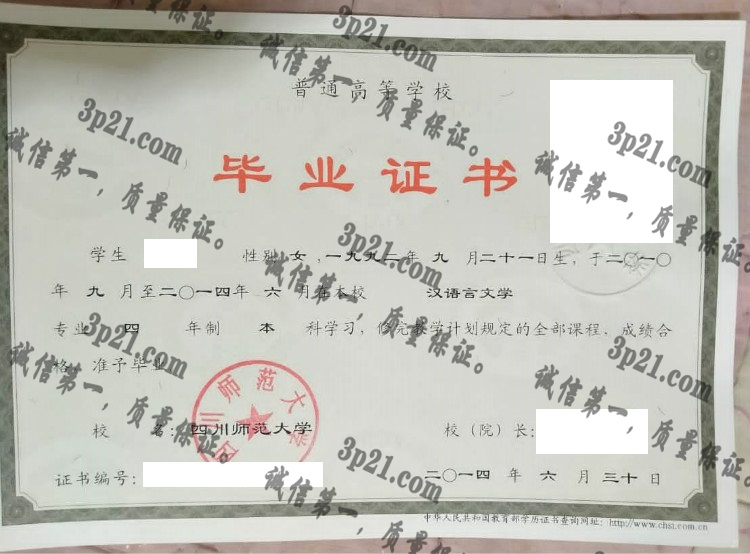 普通高等学校
毕业证书
学生 性别 女，一九九二年 九 月二十一日生，于二〇一〇
年 九 月至二〇一四年 六 月在本校 汉语言文学
专业 四 年制 本 科学习，修完教学计划规定的全部课程，成绩合
格，准予毕业
校 名：四川师范大学 校（院）长：
证书编号： 二〇一四 年 六 月 三十 日
中华人民共和国教育部学历证书查询网址：http://www.chsi.com.cn
四川师范大学
3p21.com
诚信第一，质量保证。
3p21.com
诚信第一，质量保证。
3p21.com
诚信第一，质量保证。
3p21.com
诚信第一，质量保证。
3p21.com
诚信第一，质量保证。
3p21.com
诚信第一，质量保证。
3p21.com
诚信第一，质量保证。